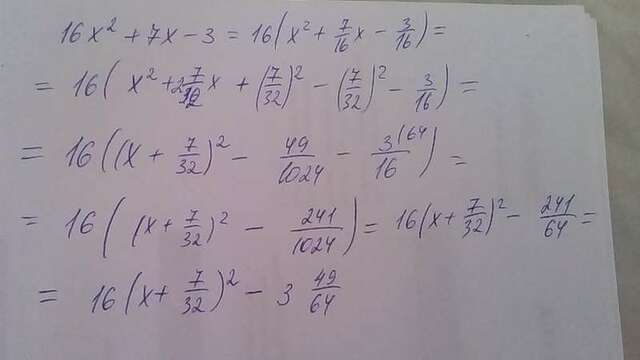 16x² + 7x - 3 = 16(x² + 7/16 x - 3/16) =
= 16( x² + 2 7/32 x + (7/32)² - (7/32)² - 3/16) =
= 16((x + 7/32)² - 49/1024 - 3(64/16) =
= 16( (x + 7/32)² - 241/1024) = 16(x + 7/32)² - 241/64 =
= 16(x + 7/32)² - 3 49/64